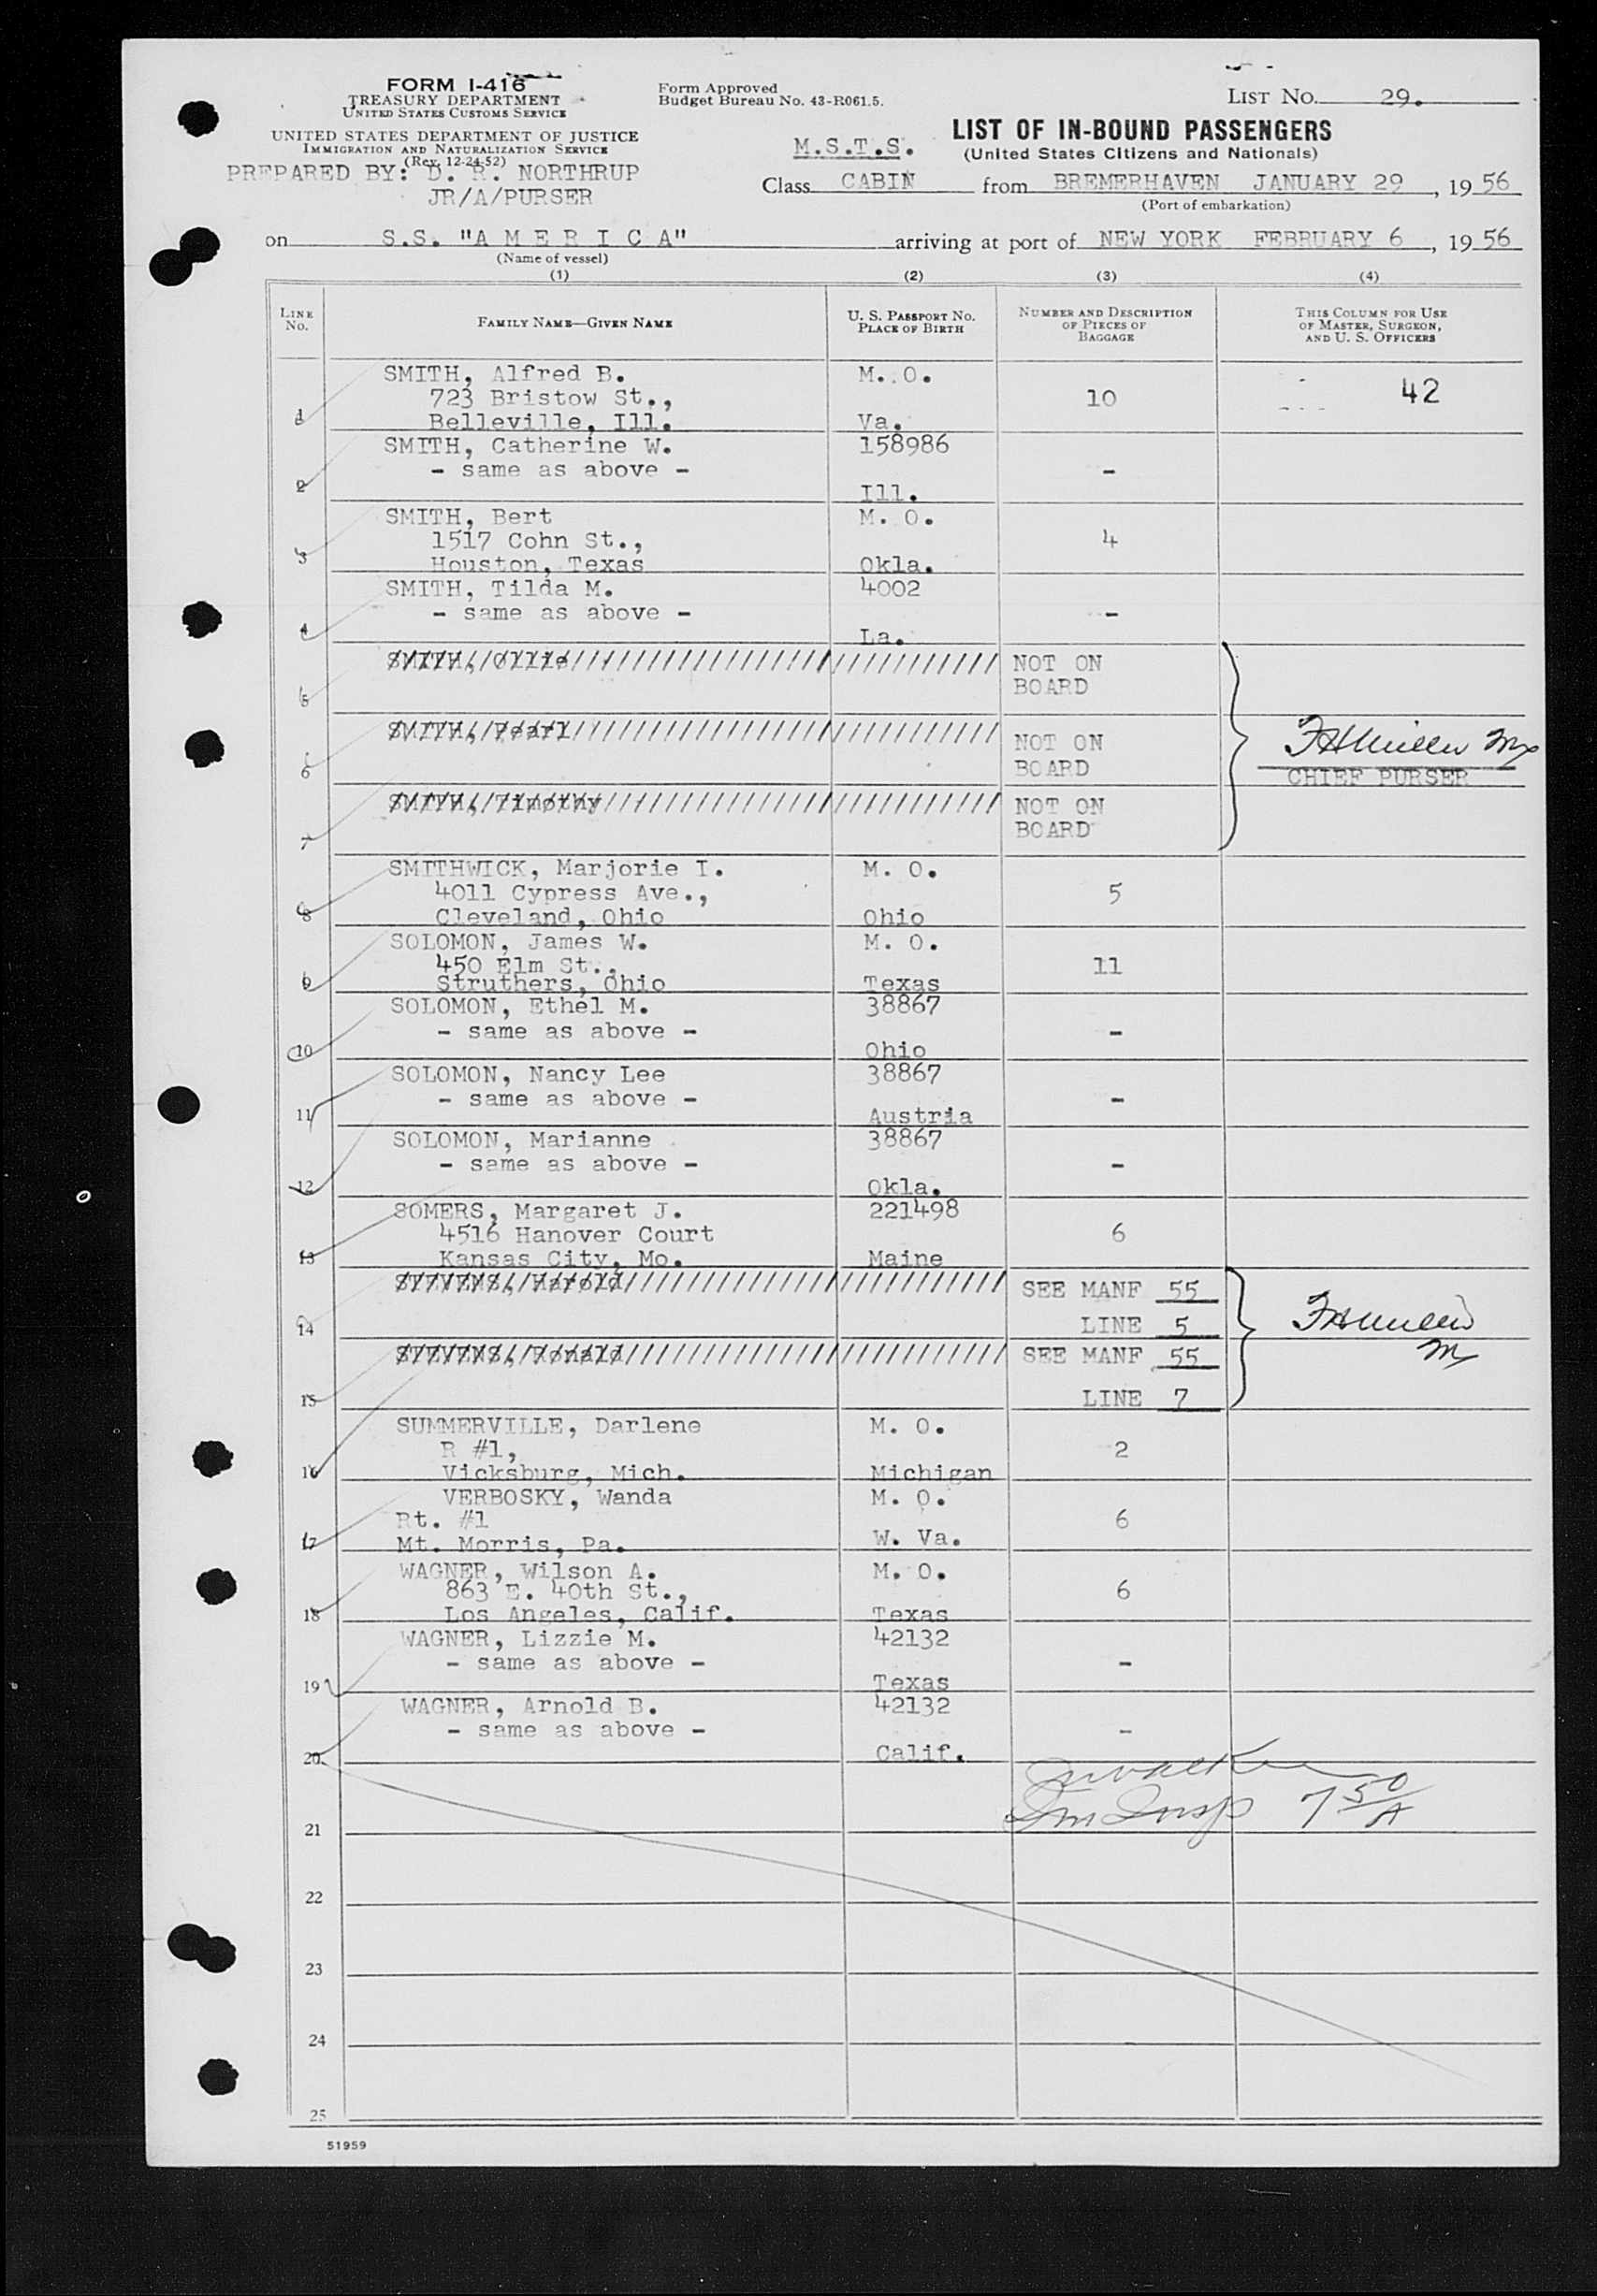 FORM I-416
TREASURY DEPARTMENT
UNITED STATES CUSTOMS SERVICE
UNITED STATES DEPARTMENT OF JUSTICE
IMMIGRATION AND NATURALIZATION SERVICE
(Rev. 12-24-52)
PREPARED BY: D. R. NORTHRUP
JR/A/PURSER
Form Approved
Budget Bureau No. 43-R061.5.
LIST NO. 29.
LIST OF IN-BOUND PASSENGERS
(United States Citizens and Nationals)
M.S.T.S.
Class CABIN from BREMERHAVEN JANUARY 29, 1956
(Port of embarkation)
on S.S. "A M E R I C A" arriving at port of NEW YORK FEBRUARY 6, 1956
(Name of vessel)
(1) (2) (3) (4)
LINE NO. FAMILY NAME—GIVEN NAME U. S. PASSPORT NO. PLACE OF BIRTH NUMBER AND DESCRIPTION OF PIECES OF BAGGAGE THIS COLUMN FOR USE OF MASTER, SURGEON, AND U. S. OFFICERS
SMITH, Alfred B. M. O.
723 Bristow St., 10 42
1 Belleville, Ill. Va.
SMITH, Catherine W. 158986
- same as above - -
2 Ill.
SMITH, Bert M. O.
1517 Cohn St., 4
3 Houston, Texas Okla.
SMITH, Tilda M. 4002
- same as above - -
4 La.
SMITH, Ollie NOT ON
5 BOARD
SMITH, Pearl NOT ON
6 BOARD
CHIEF PURSER
SMITH, Timothy NOT ON
7 BOARD
SMITHWICK, Marjorie I. M. O.
4011 Cypress Ave., 5
8 Cleveland, Ohio Ohio
SOLOMON, James W. M. O.
450 Elm St., 11
9 Struthers, Ohio Texas
SOLOMON, Ethel M. 38867
- same as above - -
10 Ohio
SOLOMON, Nancy Lee 38867
- same as above - -
11 Austria
SOLOMON, Marianne 38867
- same as above - -
12 Okla.
SOMERS, Margaret J. 221498
4516 Hanover Court 6
13 Kansas City, Mo. Maine
STEVENS, Harold SEE MANF 55
14 LINE 5
STEVENS, Ronald SEE MANF 55
15 LINE 7
SUMMERVILLE, Darlene M. O.
R #1, 2
16 Vicksburg, Mich. Michigan
VERBOSKY, Wanda M. O.
Rt. #1 6
17 Mt. Morris, Pa. W. Va.
WAGNER, Wilson A. M. O.
863 E. 40th St., 6
18 Los Angeles, Calif. Texas
WAGNER, Lizzie M. 42132
- same as above - -
19 Texas
WAGNER, Arnold B. 42132
- same as above - -
20 Calif.
Im Insp 7 50/A
21
22
23
24
25
51959